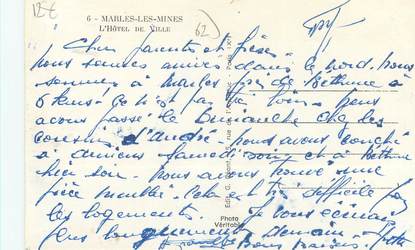 12€
6 - MARLES-LES-MINES
L'HÔTEL DE VILLE
62
Chers parents et frères
nous sommes arrivés dans le nord. nous
sommes à Marles près de Béthune à
6 kms. Ce n'est pas loin. nous
avons passé le Dimanche chez les
cousins d'André. nous avons couché
à Amiens Samedi soir et à Béthune
hier soir. nous avons trouvé une
pièce meublée. cela est très difficile
les logements. Je vous écrirais
plus longuement demain.
Bons baisers
Photo
Véritable